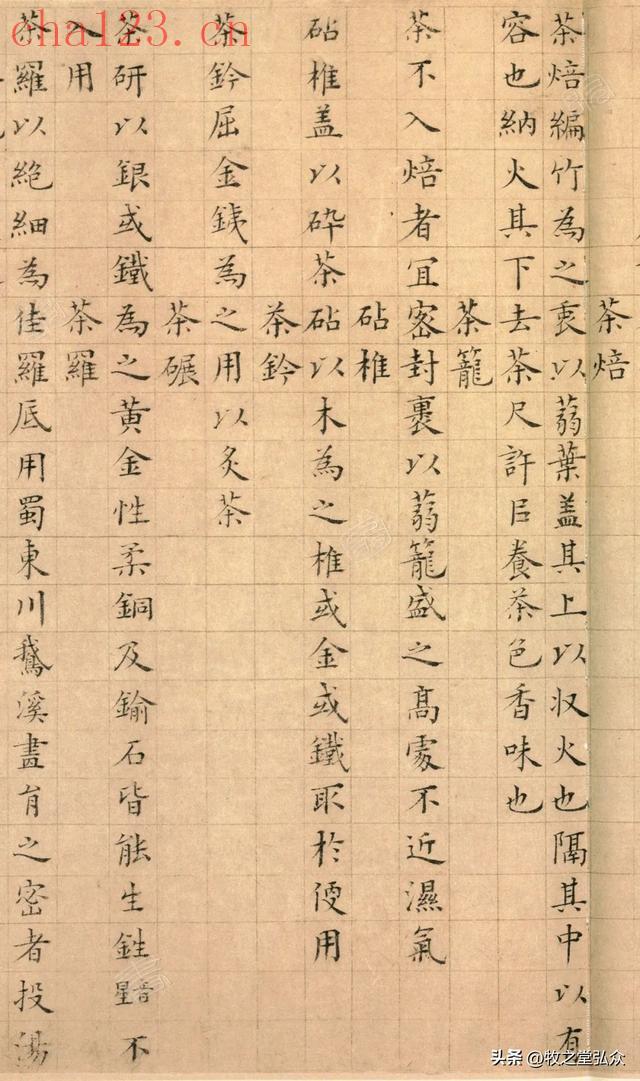 茶焙
茶焙編竹為之裹以蒻葉盖其上以収火也隔其中以有
容也納火其下去茶尺許㠯養茶色香味也
茶籠
茶不入焙者冝宻封裹以蒻籠盛之髙處不近濕氣
砧椎
砧椎盖以砕茶砧以木為之椎或金或鐵取於便用
茶鈐
茶鈐屈金銕為之用以炙茶
茶碾
茶研以銀或鐵為之黄金性柔銅及鍮石皆能生鉎音星不
入用 茶羅
茶羅以絶細為佳羅底用蜀東川鵝溪畫肙之密者投湯
cha123.cn
头条 @牧之堂弘众